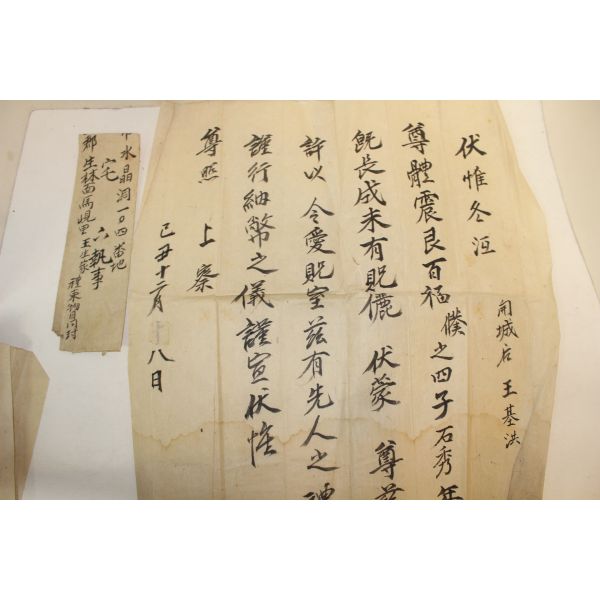 伏惟冬沍
開城后 王基洪
尊體震艮百福 僕之四子石秀年
旣長成未有貺儷 伏蒙 尊茲
許以 令愛貺室茲有先人之禮
謹行納幣之儀 謹宣 伏惟
尊照 上案
己丑十二月 十八日
水晶洞一〇四番地
宅 六執事
郡 生林面馬峴里王生家